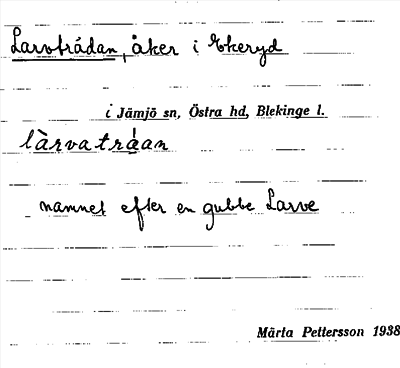 Larvtrådan, åker i Ekeryd
i Jämjö sn, Östra hd, Blekinge l.
làrvatráan
namnet efter en gubbe Larve
Märta Pettersson 1938